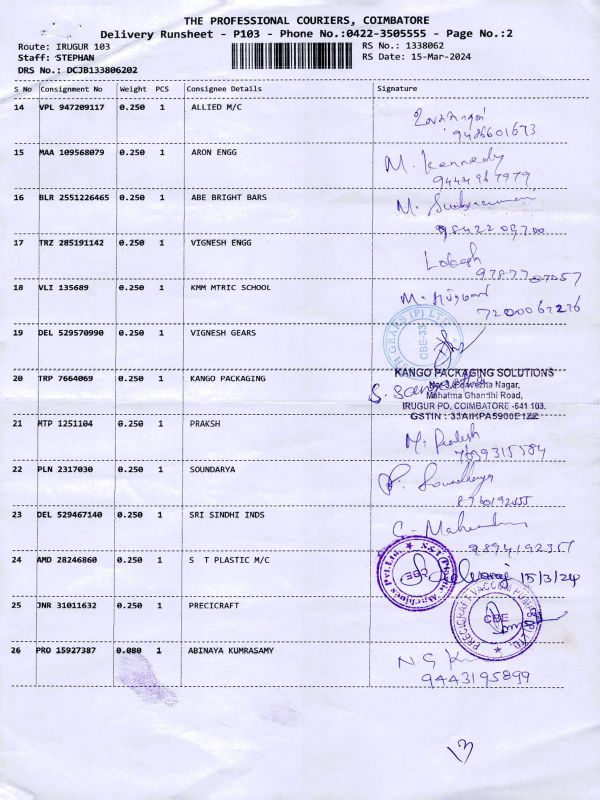 THE PROFESSIONAL COURIERS, COIMBATORE
Delivery Runsheet - P103 - Phone No.:0422-3505555 - Page No.:2
Route: IRUGUR 103 RS No.: 1338062
Staff: STEPHAN RS Date: 15-Mar-2024
DRS No.: DCJB133806202
S No Consignment No Weight PCS Consignee Details Signature
14 VPL 947209117 0.250 1 ALLIED M/C
9486601673
15 MAA 109568079 0.250 1 ARON ENGG M. Kennedy
9444967979
16 BLR 2551226465 0.250 1 ABE BRIGHT BARS M.
17 TRZ 285191142 0.250 1 VIGNESH ENGG Lokesh
18 VLI 135689 0.250 1 KMM MTRIC SCHOOL M.
7200067276
19 DEL 529570990 0.250 1 VIGNESH GEARS
GEARS (P) LTD
CBE-33
20 TRP 7664069 0.250 1 KANGO PACKAGING
KANGO PACKAGING SOLUTIONS
Nagar,
Mahatma Ghandhi Road,
IRUGUR PO, COIMBATORE -641 103.
GSTIN : 33AIKPA5900E1ZZ
S. Sangeetha
21 MTP 1251104 0.250 1 PRAKSH
7639315584
22 PLN 2317030 0.250 1 SOUNDARYA P. Soundharya
23 DEL 529467140 0.250 1 SRI SINDHI INDS
9894192351
24 AMD 28246860 0.250 1 S T PLASTIC M/C
Plastic Machines Pvt.Ltd.
CBE
15/3/24
25 JNR 31011632 0.250 1 PRECICRAFT
CBE
26 PRO 15927387 0.080 1 ABINAYA KUMRASAMY
9443195899
13